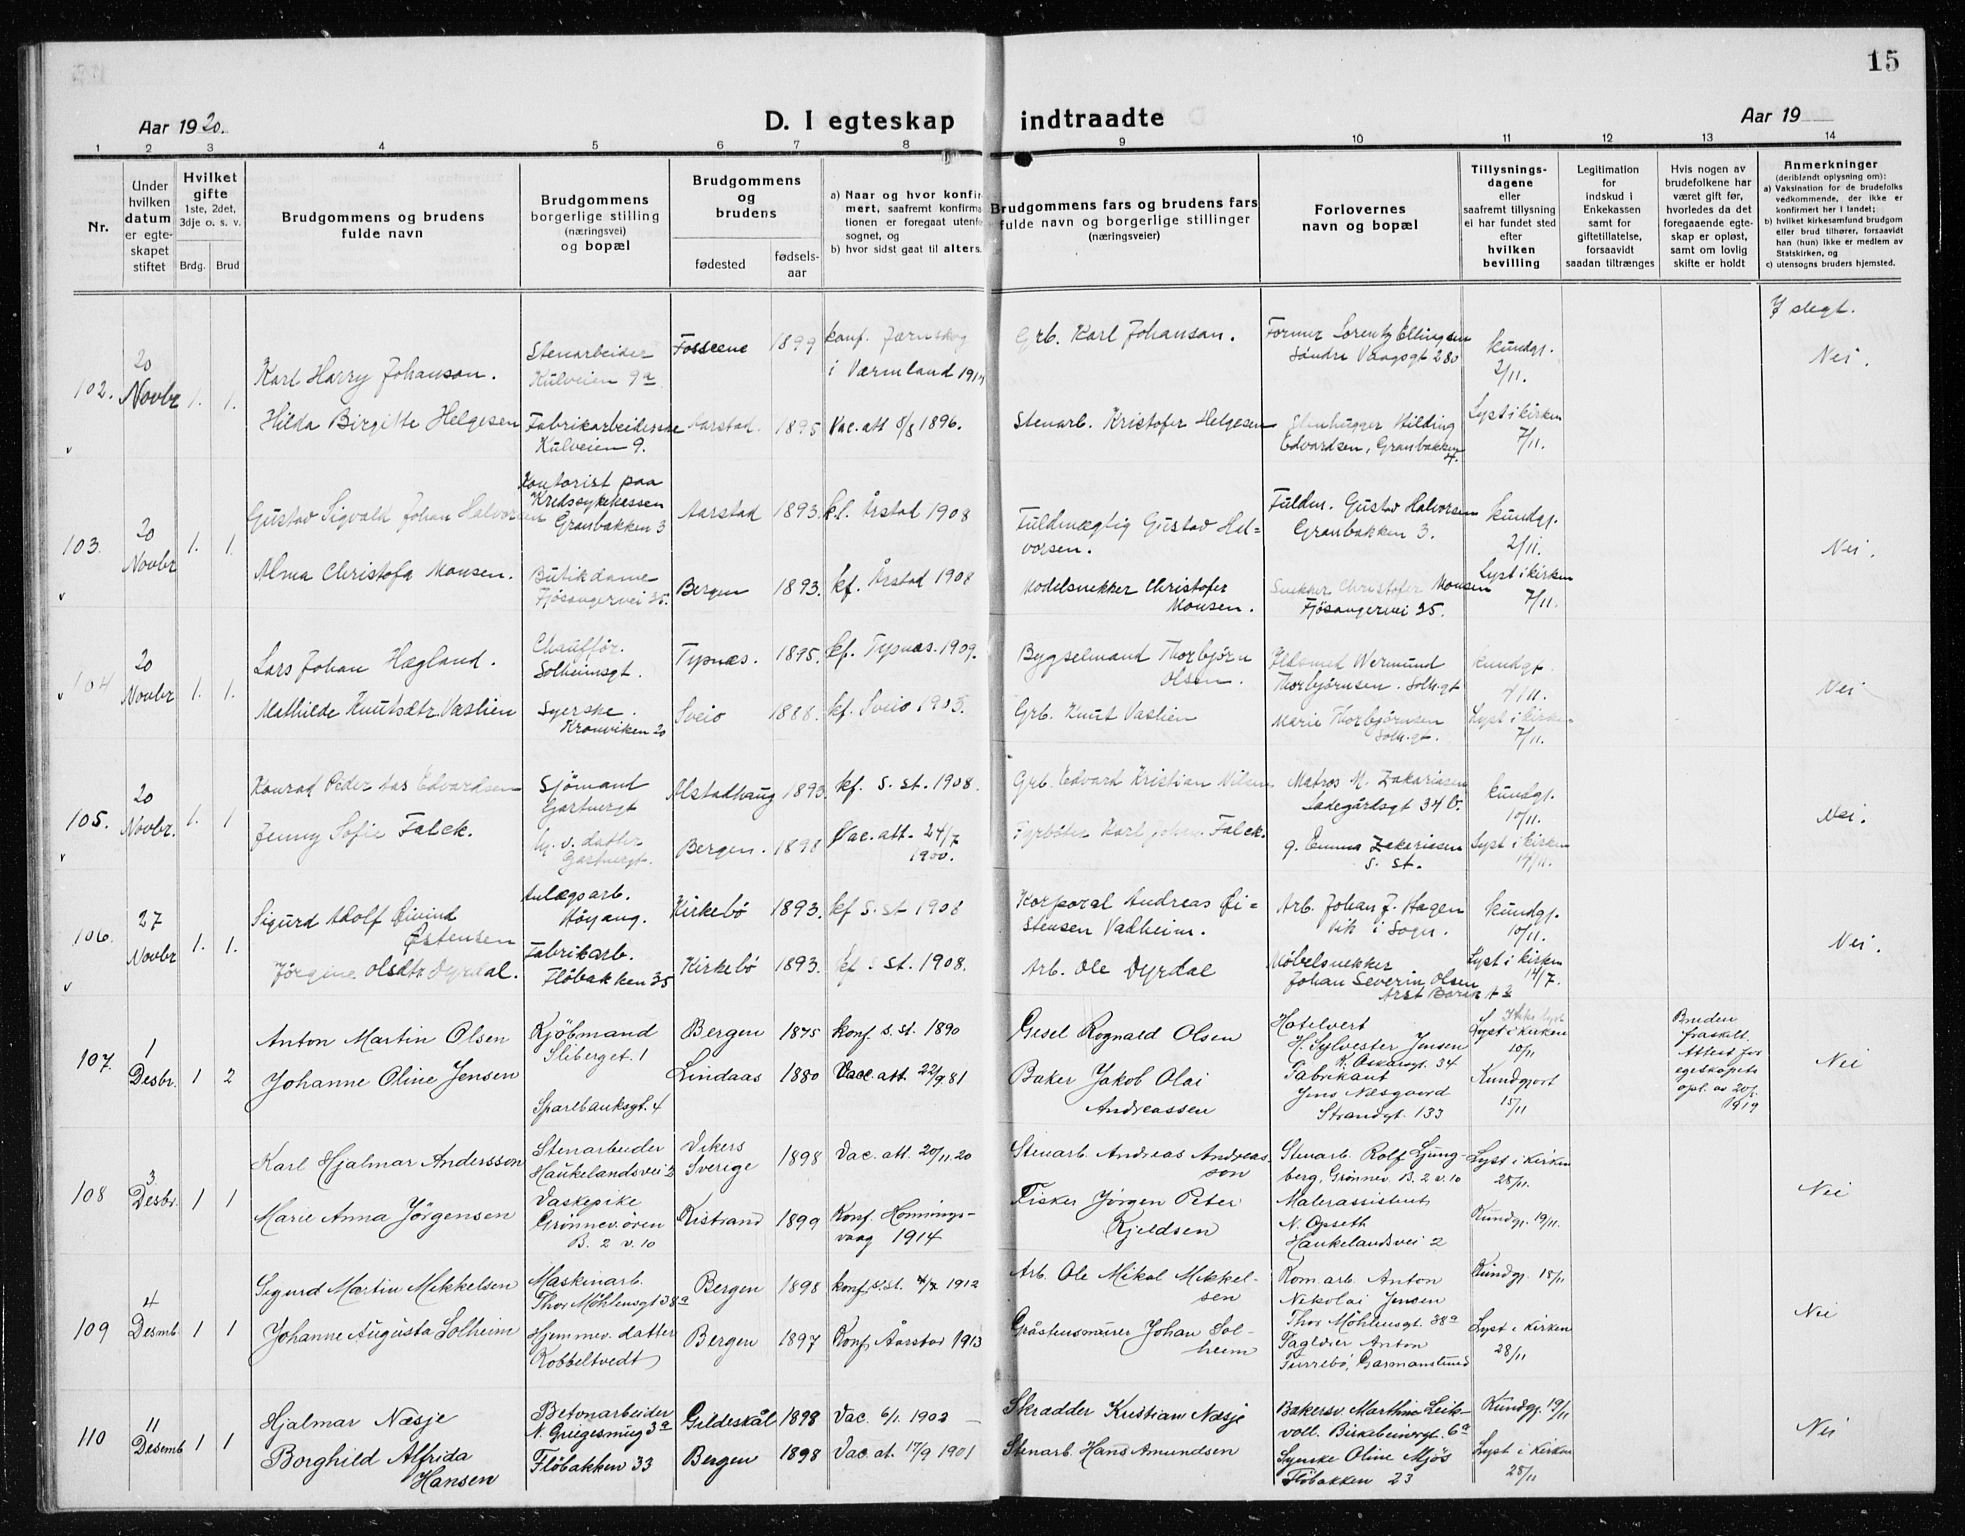 15
Aar 1920.
D. I egteskap indtraadte
Aar 19
1 2 3 4 5 6 7 8 9 10 11 12 13 14
Nr.
Under
hvilken
datum
er egte-
skapet
stiftet
Hvilket
gifte
1ste, 2det,
3dje o. s. v.
Brdg. Brud
Brudgommens og brudens
fulde navn
Brudgommens
borgerlige stilling
(næringsvei)
og bopæl
Brudgommens
og
brudens
fødested
fødsels-
aar
a) Naar og hvor konfir-
mert, saafremt konfirma-
tionen er foregaat utenfor
sognet, og
b) hvor sidst gaat til alters.
Brudgommens fars og brudens fars
fulde navn og borgerlige stillinger
(næringsveier)
Forlovernes
navn og bopæl
Tillysnings-
dagene
eller
saafremt tillysning
ei har fundet sted
efter
hvilken
bevilling
Legitimation
for
indskud i
Enkekassen
samt for
giftetillatelse,
forsaavidt
saadan tiltrænges
Hvis nogen av
brudefolkene har
været gift før,
hvorledes da det
foregaaende egte-
skap er opløst,
samt om lovlig
skifte er holdt
Anmerkninger
(deriblandt oplysning om):
a) Vaksination for de brudefolks
vedkommende, der ikke er
konfirmert her i landet;
b) hvilket kirkesamfund brudgom
eller brud tilhører, forsaavidt
han (hun) ikke er medlem av
Statskirken, og
c) utensogns bruders hjemsted.
I slegt.
102.
20
Novbr
1. 1.
Karl Harry Johanson.
Stenarbeider
Kulveien 9a
Fosseene
1899
konf. Jærnskog
i Værmland
Grb. Karl Johanson.
Former Lorentz Ellingsen
Søndre Vaagsgt 280
kundgj.
2/11.
Nei.
Hilda Birgitte Helgesen
Fabrikarbeiderske
Kulveien 9.
Aarstad.
1895
Vac. att 8/8 1896.
Stenarb. Kristofer Helgesen
Stenhugger Hilding
Edvardsen, Granbakken
4.
Lyst i kirken
7/11.
103.
20
Novbr
1. 1.
Gustav Sigvald Johan Halvorsen
Kontorist paa
Kredssykekassen
Granbakken 3
Aarstad
1893.
kf. Årstad 1908
Fuldmægtig Gustav Hal-
vorsen.
Fuldm. Gustav Halvorsen
Granbakken 3.
kundgj.
2/11.
Nei.
Alma Christofa Monsen.
Butikdame
Fjösangervei 35.
Bergen
1893.
kf. Årstad 1908
Modelsnekker Christofer
Monsen.
Snekker Christofer Monsen
Fjösangervei 35.
Lyst i kirken
7/11.
104
20
Novbr
1. 1.
Lars Johan Hægland.
Chaufför.
Solheimsgt.
Tysnæs.
1895.
kf. Tysnæs. 1909.
Bygselmand Thorbjörn
Olsen.
Ildsmed Wermund
Thorbjörnsen. Solh.gt
kundgt.
4/11.
Nei
Mathilde Knutsdtr. Vaslien
Syerske.
Kronviken 20
Sveio
1888.
kf. Sveio 1903.
Grb. Knut Vaslien
Marie Thorbjörnsen
Solh.gt.
Lyst i kirken
7/11.
105.
20
Novbr.
1. 1
Konrad Peder Edvardsen
Sjömand
Gartnergt
Alstadhaug
1893.
kf. S. st. 1908.
Grb. Edvard Kristian Nilsen
Matros M. Zakariasen
Ladegårdsgt 34 b.
kundgj.
10/11.
Nei.
Jenny Sofie Falck.
hj. v. datter
Gartnergt.
Bergen.
1898
Vac. att. 24/7
1900.
Fyrböter Karl Johan Falck.
g. Emma Zakariasen
s. st.
Lyst i kirken
14/11.
106.
27
Novbr
1. 1.
Sigurd Adolf Øivind
Østensen
Anlægsarb.
Höyang.
Kirkebö
1893.
kf S. st 1908
Korporal Andreas Øi-
stensen Vadheim.
Arb. Johan J. Hagen
Vik i Sogn.
kundgj.
10/11.
Nei.
Jörgine Olsdtr. Dyrdal.
Fabrikarb.
Flöbakken 35
Kirkebö
1893.
kf s. st. 1908.
Arb. Ole Dyrdal
Möbelsnekker
Johan Severin Olsen
Lyst i kirken
14/7.
107.
1
Desbr.
1 2
Anton Martin Olsen
Kjöbmand
Sliberget. 1
Bergen
1875
konf. s. st. 1890
Gesel Rognald Olsen
Hotelvert
H. Sylvester Jensen
K. Oskarsgt. 34
Lyst i kirken
10/11
Bruden
fraskilt.
Attest for
egeskapets
opl. av 20/1
1919
Nei
Johanne Oline Jensen
Sparebanksgt. 4
Lindaas
1880
Vacc. att. 22/9 81
Baker Jakob Olai
Andreassen
Fabrikant
Jens Næsgaard
Strandgt. 133
Kundgjort
15/11
108
3
Desbr.
1 1
Karl Hjalmar Andersson
Stenarbeider
Haukelandsvei 2
Vikers
Sverige
1898
Vac. att. 20/11.20
Stenarb Andreas Andreas-
son
Stenarb. Rolf Ljung-
berg, Grönnev. B. 2 v. 10
Lyst i Kirken
28/11.
Nei
Marie Anna Jörgensen
Vaskepike
Grönnev. ören
B. 2 v. 10
Kistrand
1899
Konf. Honnings-
vaag 1914
Fisker Jörgen Peter
Kjeldsen
Malerassistent
N. Opseth
Haukelandsvei 2
Kundgj. 19/11.
109
4
Desmb.
1 1
Sigurd Martin Mikkelsen
Maskinarb.
Thor Möhlensgt 38a
Bergen
1898
konf. s.st. 4/7 1912
Arb. Ole Mikal Mikkel-
sen
Kom. arb. Anton
Nikolai Jensen
Thor Möhlensgt. 38a
Kundgj. 15/11
Nei
Johanne Augusta Solheim
Hjemmev. datter
Kobbeltvedt
Bergen
1897
Konf Aarstad 1913
Gråstensmurer Johan Sol-
heim
Faglærer Anton
Turrebö, Garmanslund
Lyst i Kirken
28/11
110
11
Desemb
1 1
Hjalmar Næsje
Betonarbeider
N. Griegesmug 3a
Gildeskål
1898
Vac. 6/1. 1902
Skrædder Kristian Næsje
Bakersv. Marthin Leik-
voll. Birkebeinergt. 6a
Kundgj 19/11
Nei
Borghild Alfrida
Hansen
Flöbakken 33
Bergen
1898
Vac. at. 17/9 1901
Stenarb. Hans Amundsen
Syerske Oline Mjös
Flöbakken 23
Lyst i Kirken
28/11